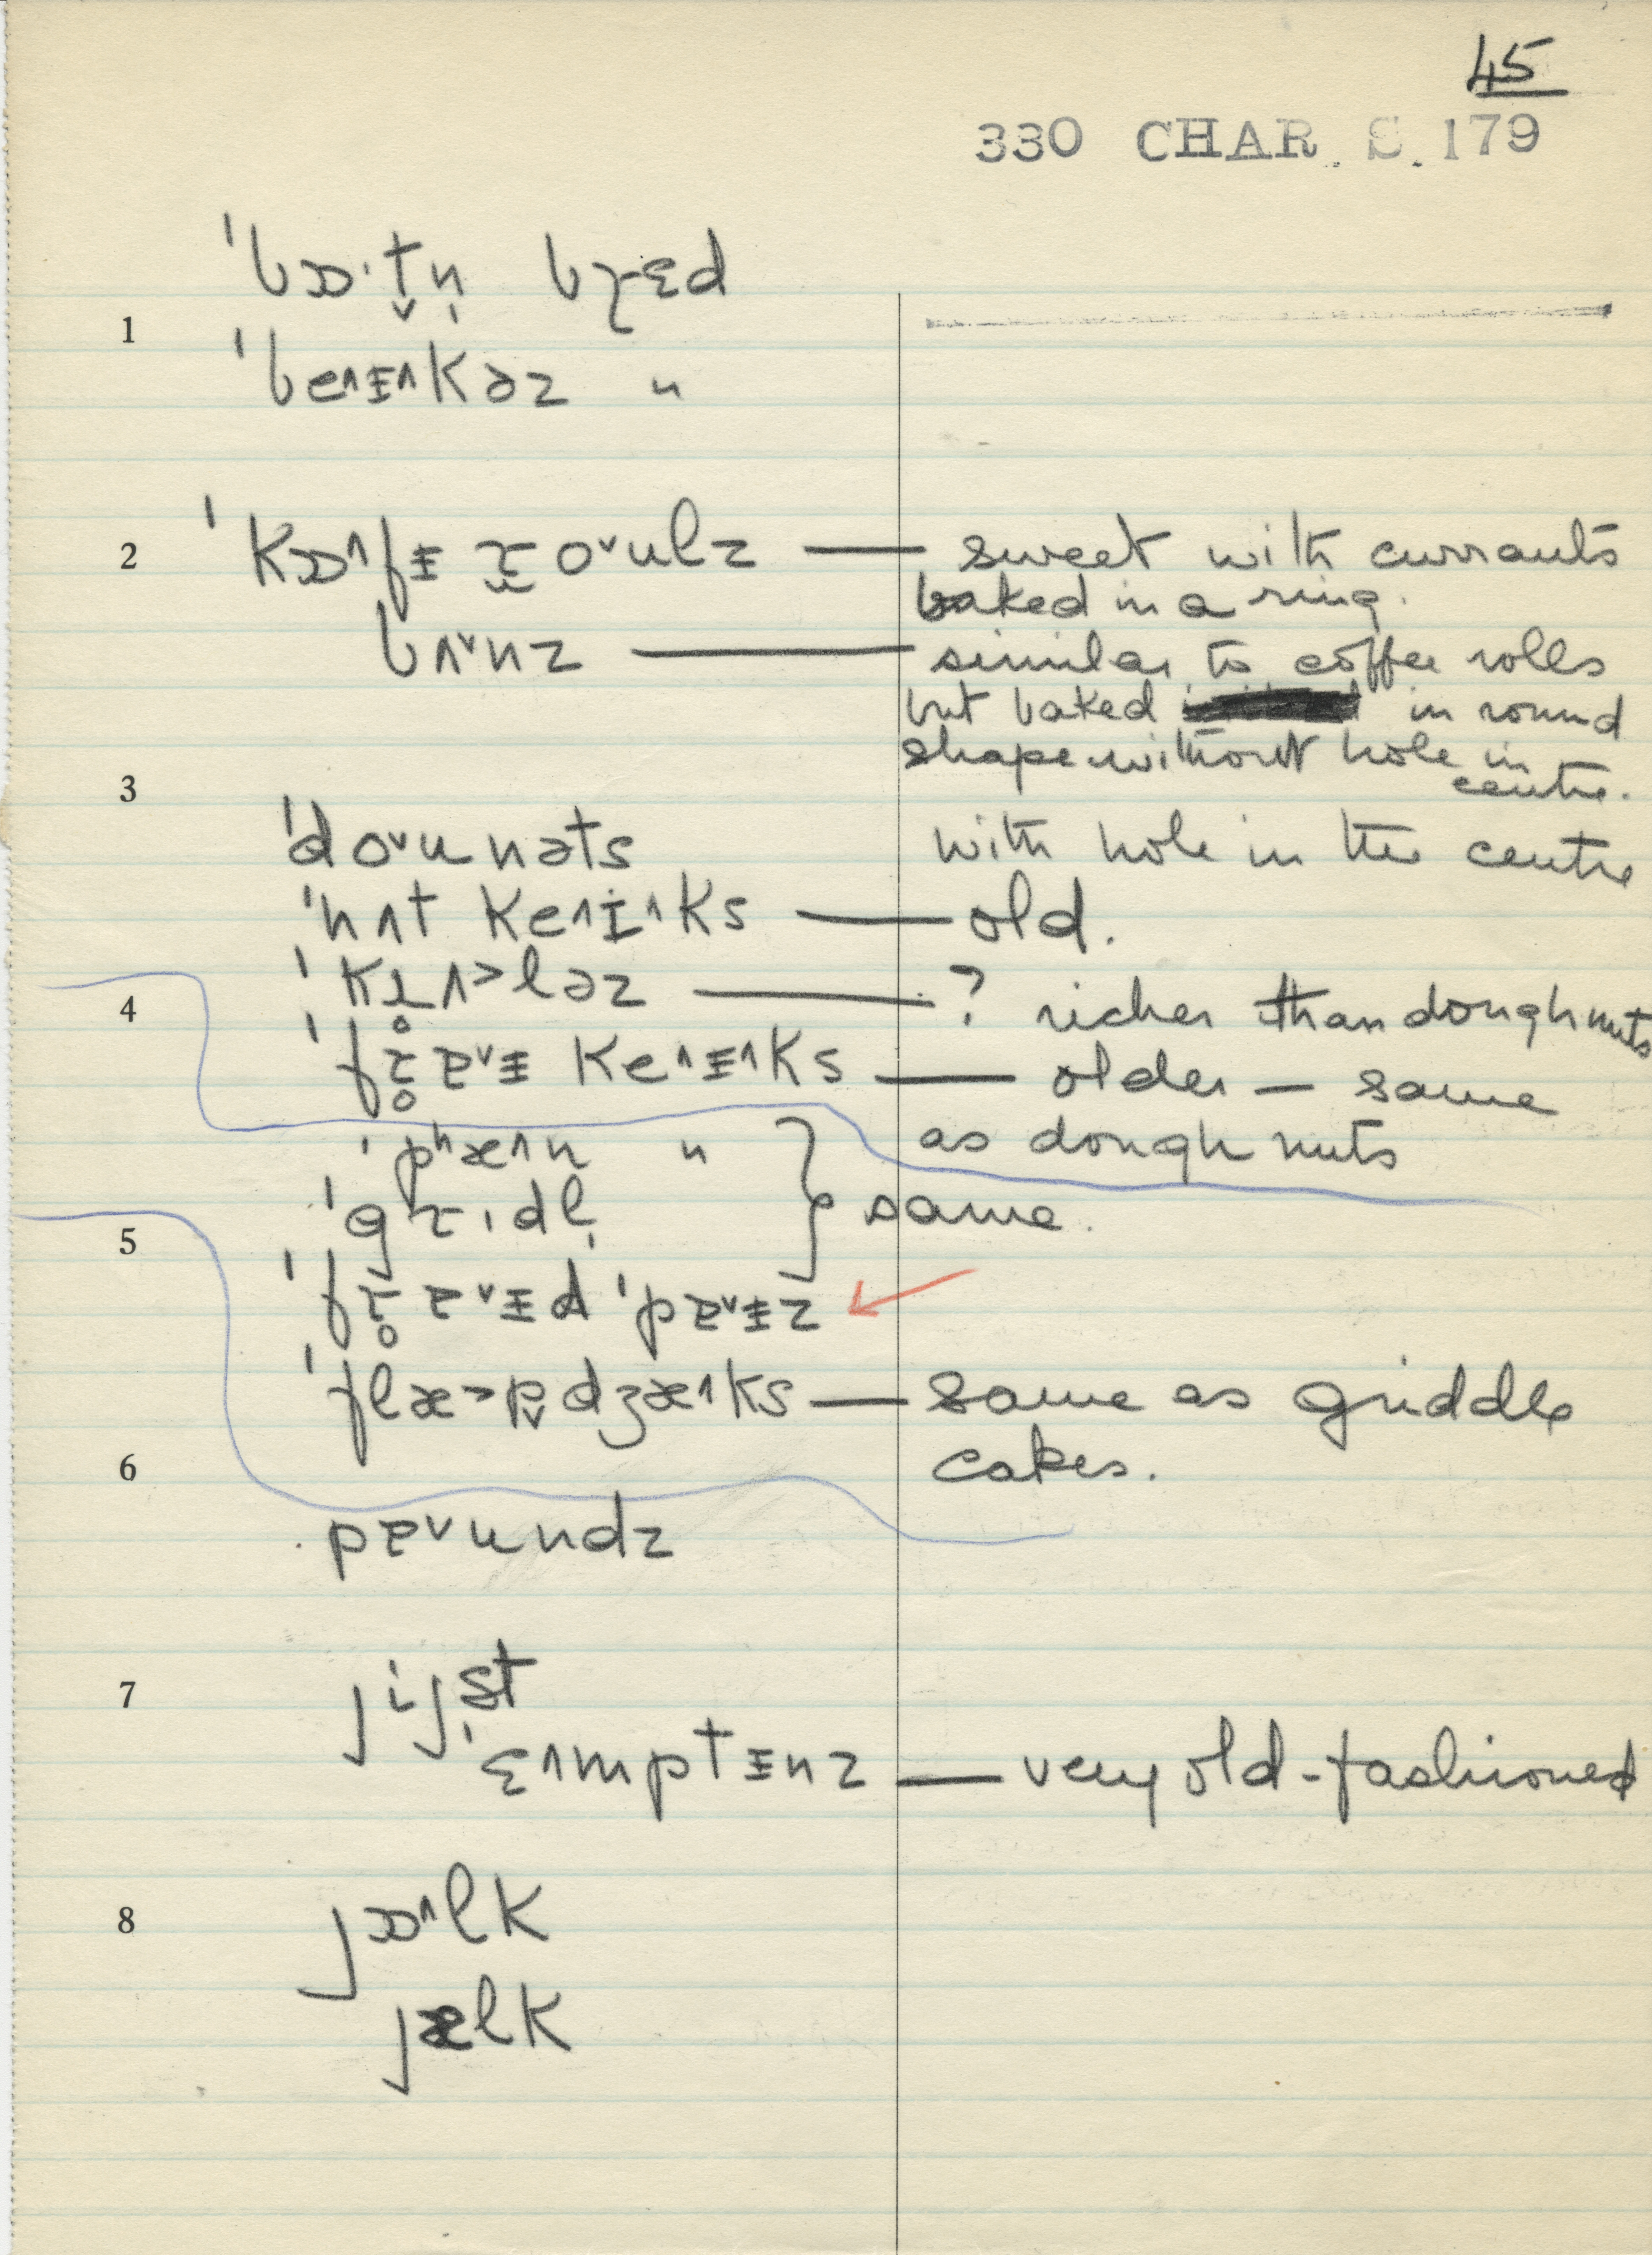 45
330 CHAR. S. 179
ˈbɒ·t̬n̩ bɹɛd
1
ˈbe˄ɪ˄kəz "
2 ˈkɒ˄fɪ ɹ̬o˅ulz — sweet with currants
baked in a ring.
bʌ˅nz — similar to coffee rolls
but baked in round
shape without hole in
3 centre.
ˈdo˅unəts with hole in the centre
ˈnʌt ke˄ɪ˄ks — old.
4 ˈkɹ̥ʌ˃ləz — ? richer than doughnuts
ˈfɹ̥ɐ˅ɪ ke˄ɪ˄ks — older — same
ˈpʰæ˄n " as doughnuts
5 ˈgɹɪdl̩ } same.
ˈfɹ̥ɐ˅ɪd ˈpɐ˅ɪz
ˈflæ˃p̬dʒæ˄ks — same as griddle
6 cakes.
pɐ˅undz
7 jijst
ˈɛ˄mptɪnz — very old-fashioned
8 jɒ˄lk
jælk